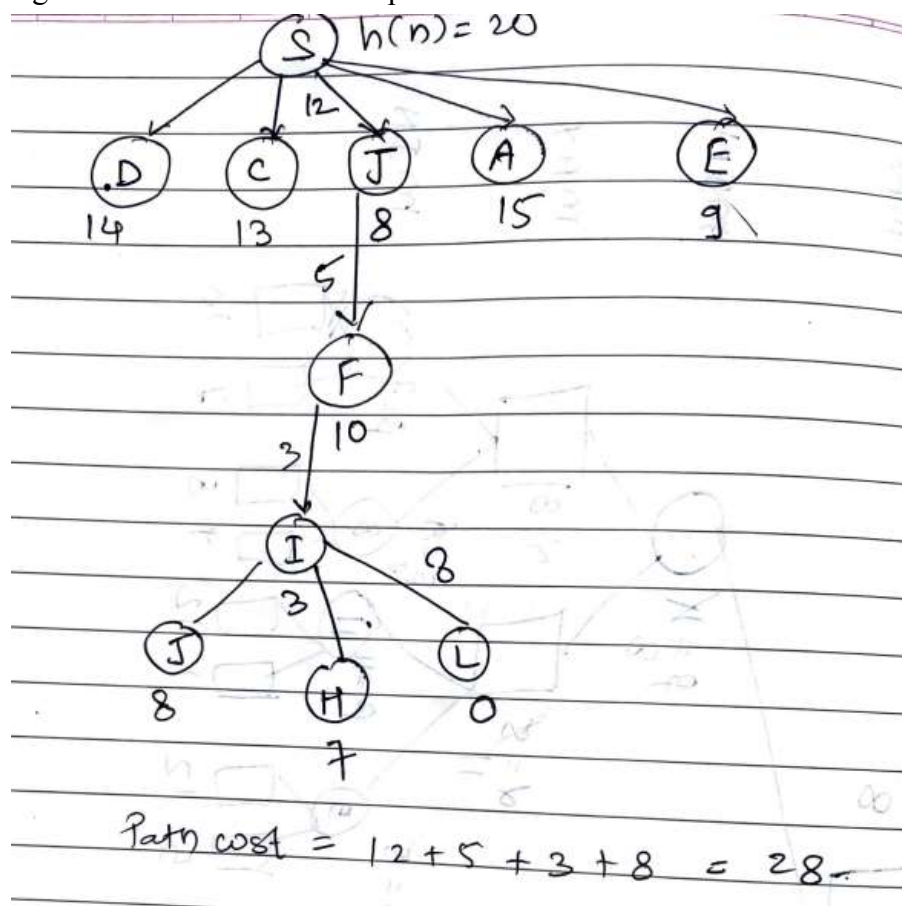 S h(n) = 20
12
D C J A E
14 13 8 15 9
5
F
10
3
I
8
3
J H L
8 7 0
Path cost = 12 + 5 + 3 + 8 = 28